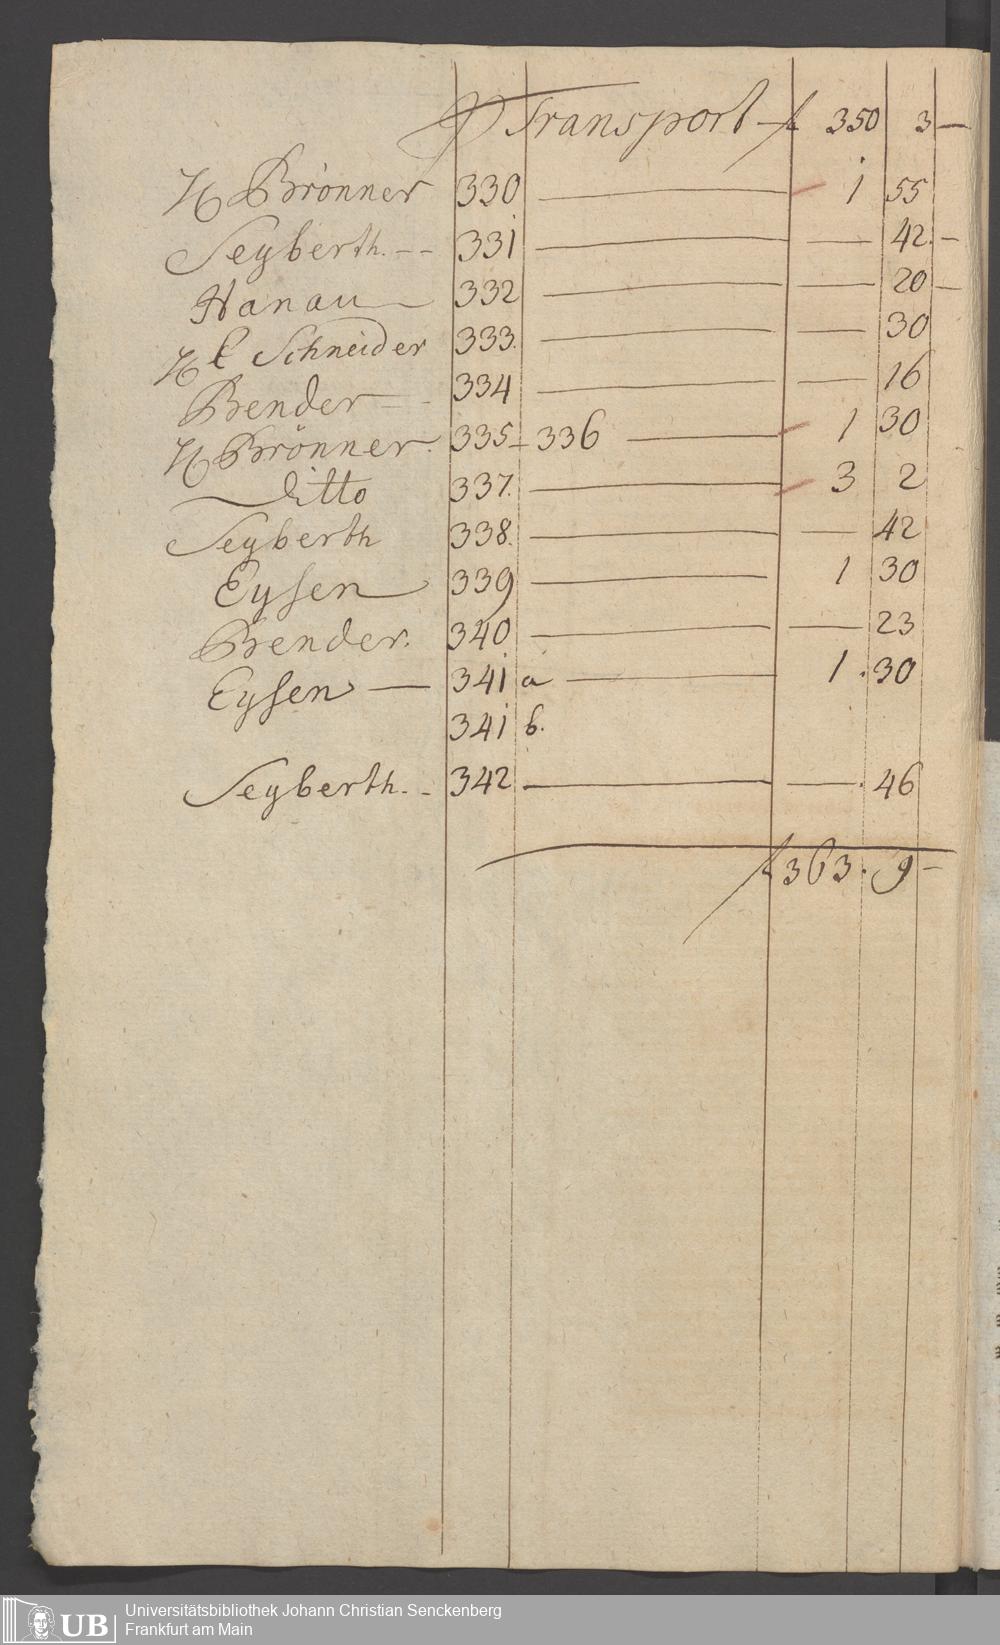 Transport f 350 3 —
H Brönner 330 — 1 55
Seyberth. -- 331 — — 42. —
Hanau — 332 — — 20 —
H C Schneider 333. — — 30
Bender — 334 — — 16
H Brönner. 335 - 336 — 1 30
Ditto 337. — 3 2
Seyberth 338. — — 42
Eysen 339 — 1 30
Bender. 340 — — 23
Eysen — 341 a — 1 . 30
341 b.
Seyberth. - 342 — — . 46
f 363 . 9 —
UB Universitätsbibliothek Johann Christian Senckenberg
Frankfurt am Main